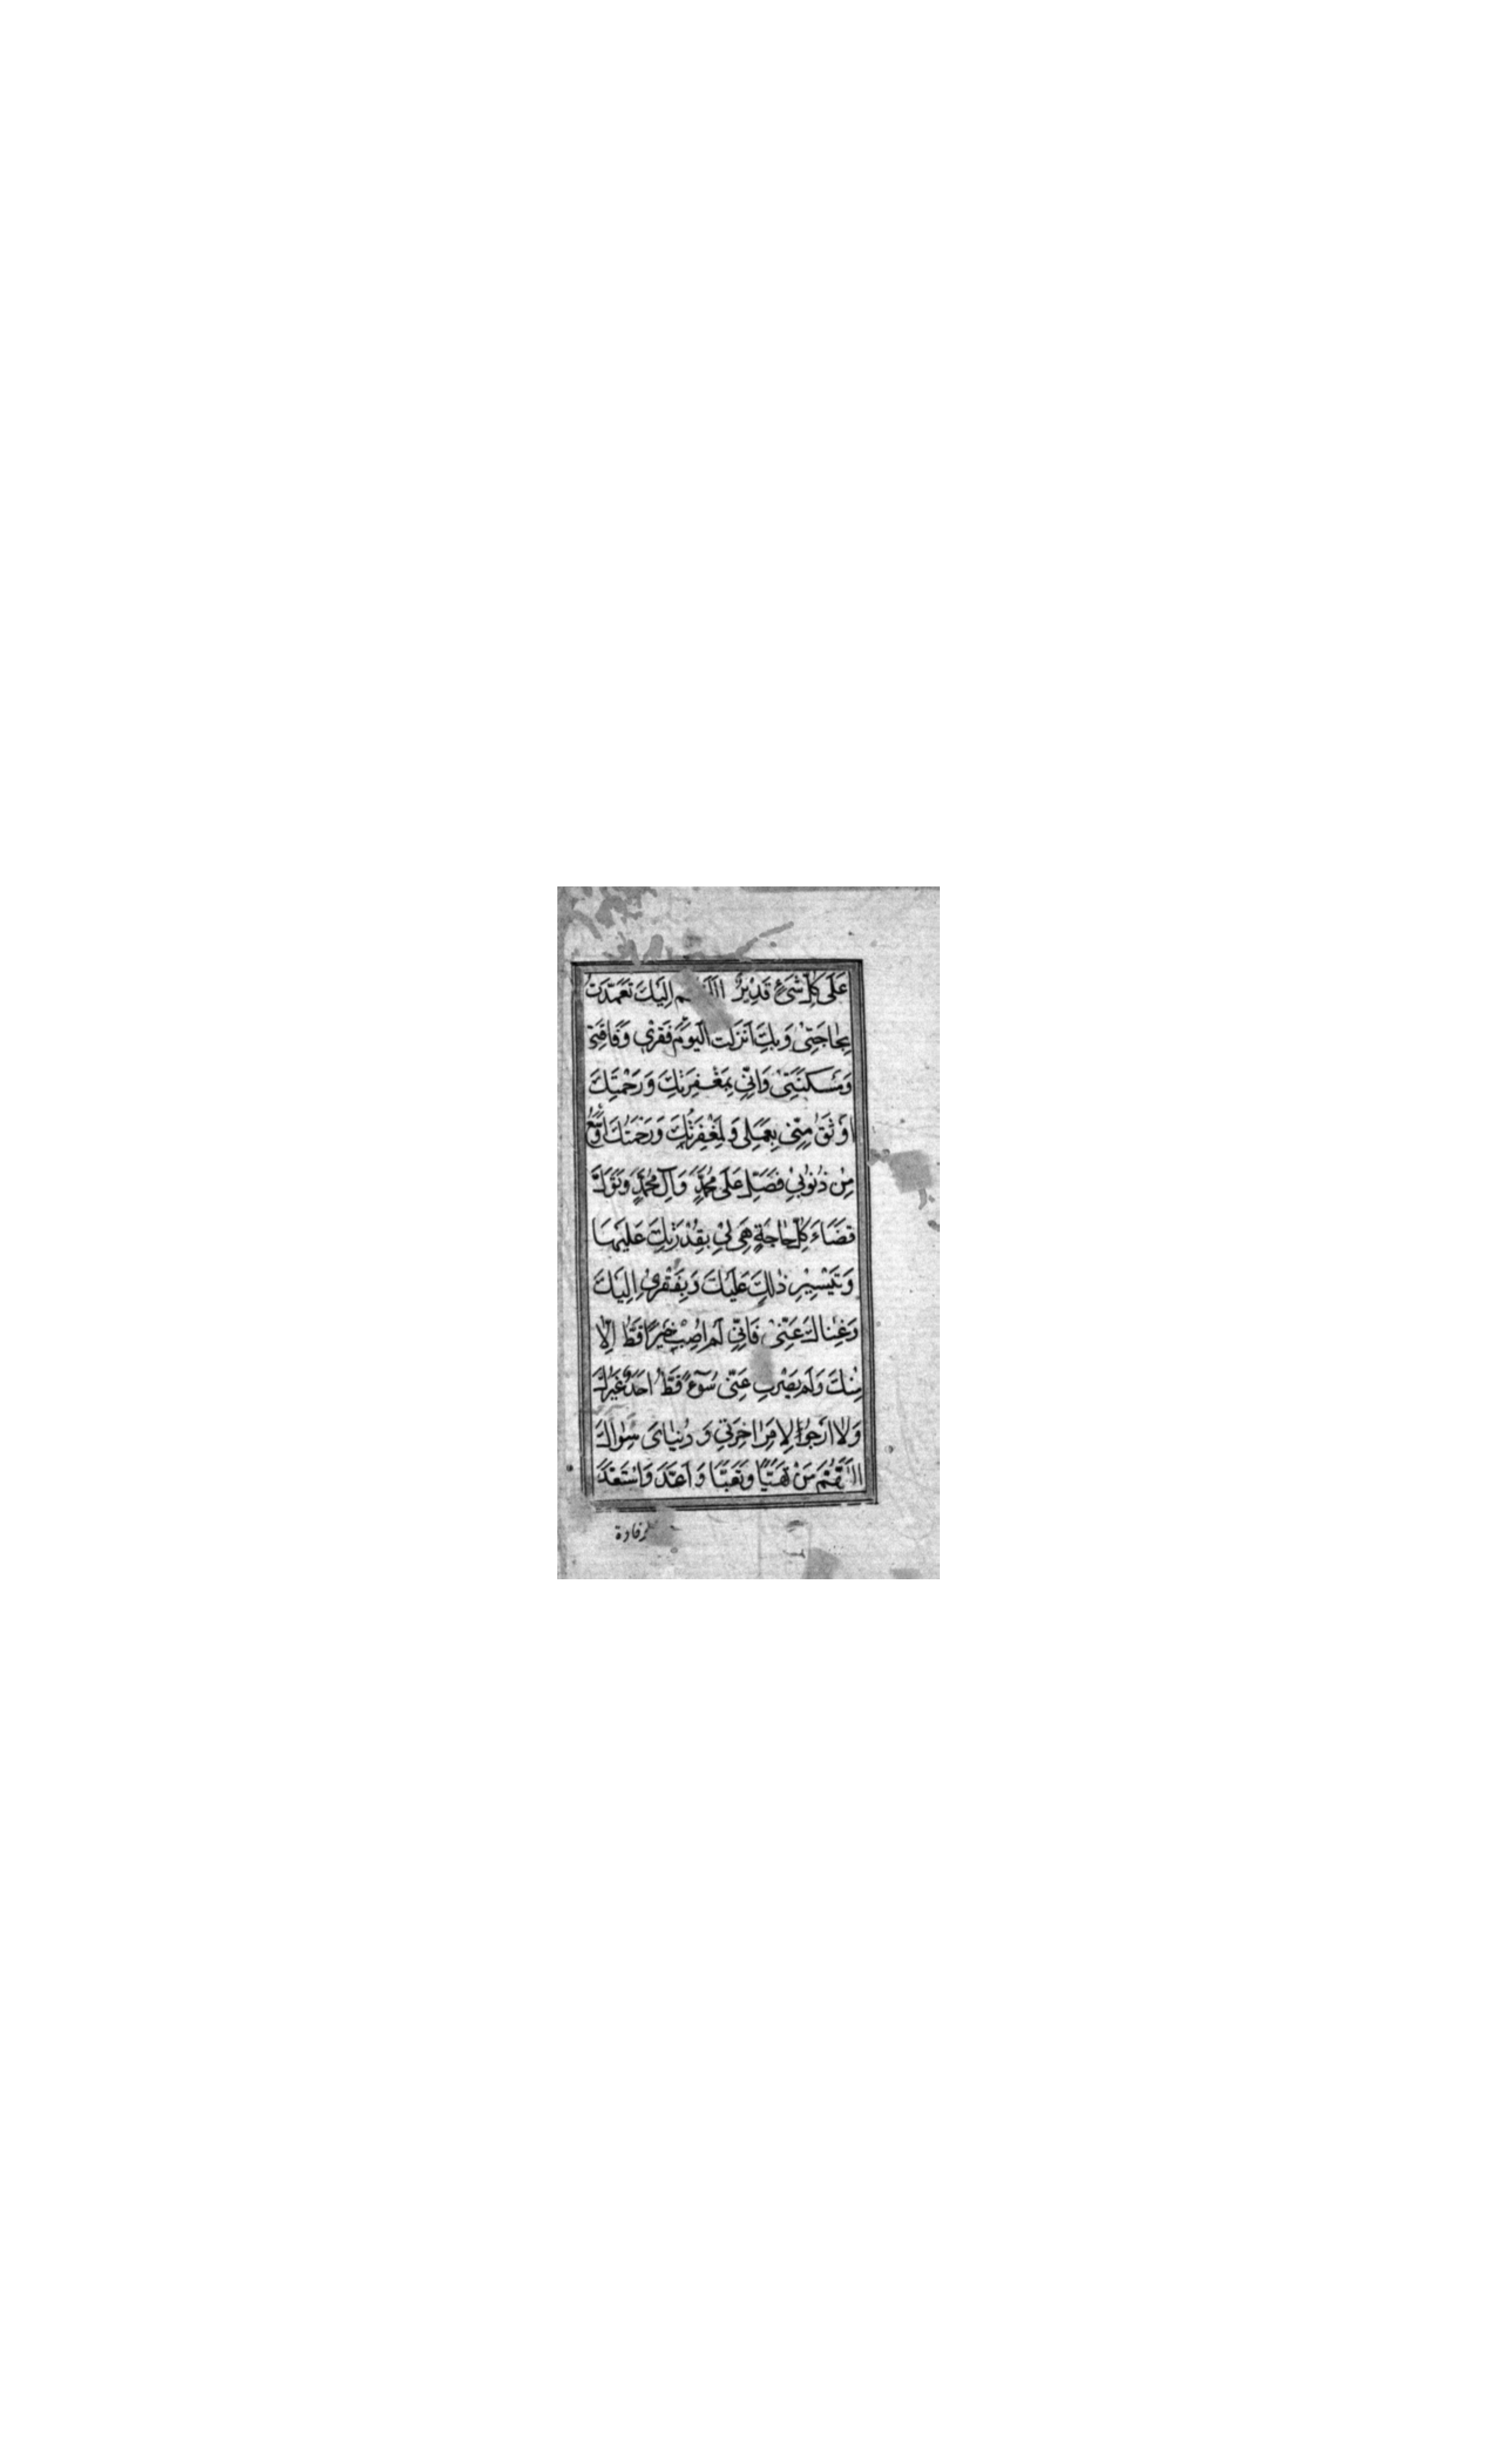 عَلَى كُلِّ شَيْءٍ قَدِيرٌ اللّهُمَّ إِلَيْكَ تَعَمَّدْتُ
بِحَاجَتِي وَبِكَ أَنْزَلْتُ الْيَوْمَ فَقْرِي وَفَاقَتِي
وَمَسْكَنَتِي وَإِنِّي بِمَغْفِرَتِكَ وَرَحْمَتِكَ
أَوْثَقُ مِنِّي بِعَمَلِي وَلَمَغْفِرَتُكَ وَرَحْمَتُكَ أَوْسَعُ
مِنْ ذُنُوبِي فَصَلِّ عَلَى مُحَمَّدٍ وَآلِ مُحَمَّدٍ وَتَوَلَّ
قَضَاءَ كُلِّ حَاجَةٍ هِيَ لِي بِقُدْرَتِكَ عَلَيْهَا
وَتَيْسِيرِ ذٰلِكَ عَلَيْكَ وَبِفَقْرِي إِلَيْكَ
وَغِنَاكَ عَنِّي فَإِنِّي لَمْ أُصِبْ خَيْرًا قَطُّ إِلَّا
مِنْكَ وَلَمْ يَصْرِفْ عَنِّي سُوءًا قَطُّ أَحَدٌ غَيْرُكَ
وَلَا أَرْجُو لِأَمْرِ آخِرَتِي وَدُنْيَايَ سِوَاكَ
اللّهُمَّ مَنْ تَهَيَّأَ وَتَعَبَّأَ وَأَعَدَّ وَاسْتَعَدَّ
لوفادة